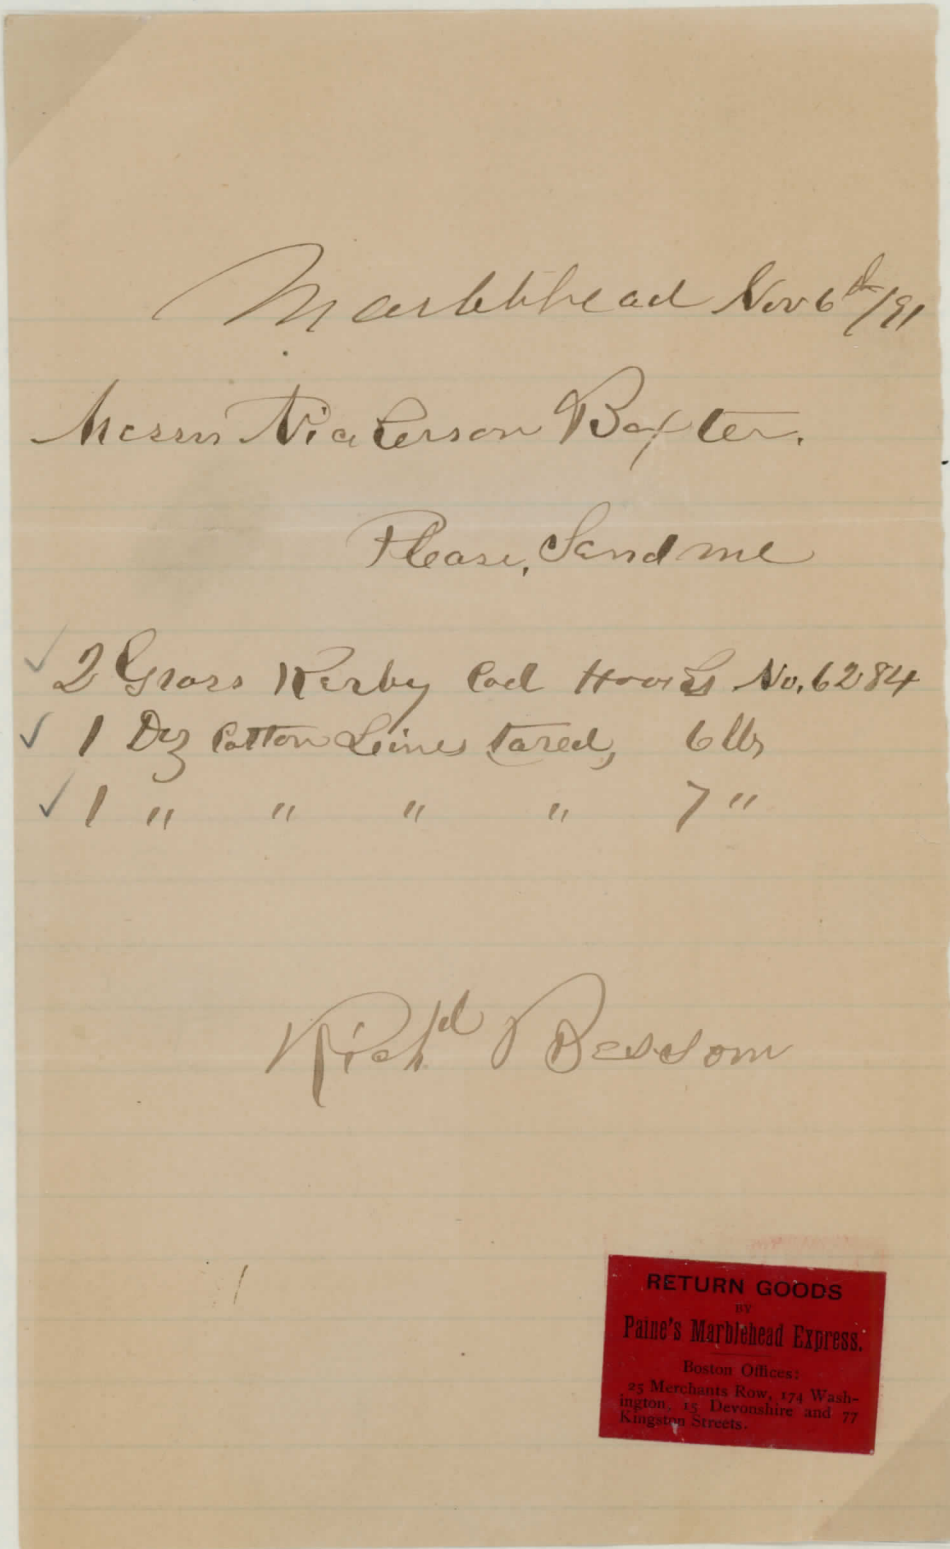 Marblehead Nov 6th/91
Messrs Nickerson Baxter.
Please, Send me
✓ 2 Gross Kerby Cod Hooks No, 6284
✓ 1 Doz Cotton Lines tared, 6 lbs
✓ 1 " " " " 7 "
Richd Bessom
RETURN GOODS
BY
Paine's Marblehead Express.
Boston Offices:
25 Merchants Row, 174 Wash-
ington, 15 Devonshire and 77
Kingston Streets.